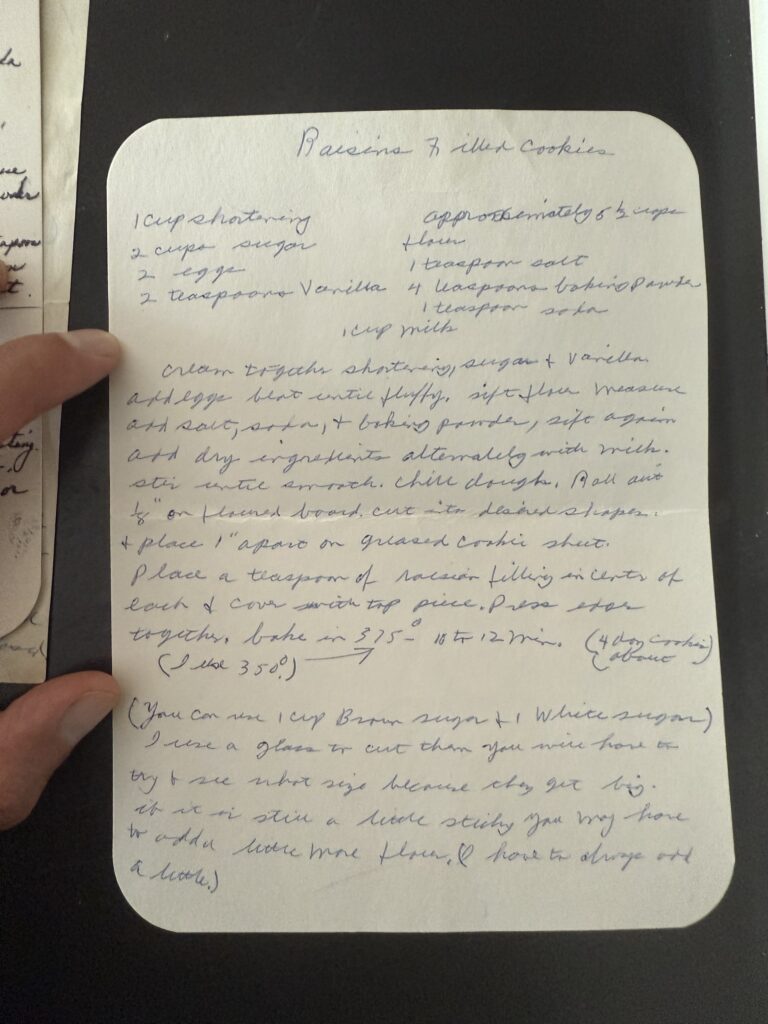 Raisins Filled Cookies
1 cup shortening
2 cups sugar
2 eggs
2 teaspoons Vanilla
approximately 5 1/2 cups
flour
1 teaspoon salt
4 teaspoons baking Powder
1 teaspoon soda
1 cup milk
Cream together shortening, sugar & Vanilla.
add eggs beat until fluffy. sift flour measure
add salt, soda, & baking powder, sift again
add dry ingredients alternately with milk.
stir until smooth. Chill dough. Roll out
1/8" on floured board. cut into desired shapes.
& place 1" apart on greased cookie sheet.
Place a teaspoon of raisin filling in center of
each & cover with top piece. Press edges
together. bake in 375° 10 to 12 Min. (4 doz cookies)
(about
(I use 350°.)
(You can use 1 cup Brown sugar & 1 White sugar)
I use a glass to cut them you will have to
try & see what size because they get big.
if it is still a little sticky you may have
to add a little more flour. (I have to always add
a little.)